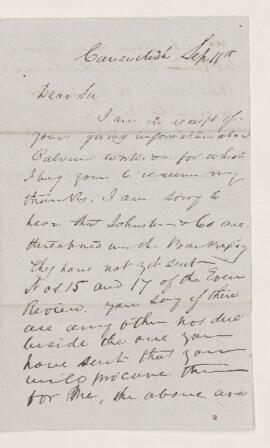 Cavendish Sep 11th
Dear Sir
I am in receipt of
yours giving information about
Calvins works & for which
I beg you to receive my
thanks. I am sorry to
hear that Johnston & Co are
threatened with Bankruptcy
They have not yet sent
Nos 15 and 17 of the Evan
Review. You say if there
are any other nos due
beside the one you
have sent that you
will procure them
for me, the above are